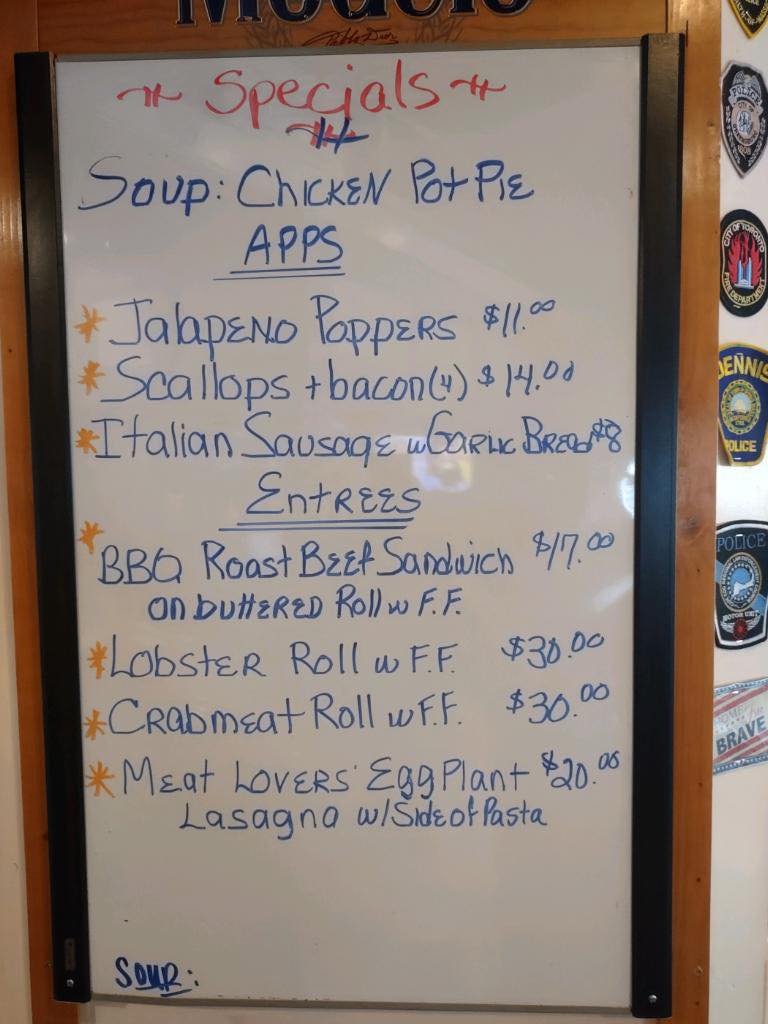 Modelo
Specials
Soup: Chicken Pot Pie
APPS
* Jalapeno Poppers $11.00
* Scallops + bacon (4) $14.00
* Italian Sausage w Garlic Bread $8
Entrees
* BBQ Roast Beef Sandwich $17.00
on buttered Roll w F.F.
* Lobster Roll w F.F. $30.00
* Crabmeat Roll w F.F. $30.00
* Meat Lovers' Egg Plant $20.00
Lasagna w/Side of Pasta
Soup:
POLICE
CITY OF TORONTO
FIRE DEPARTMENT
DENNIS
POLICE
POLICE
MOTOR UNIT
BRAVE